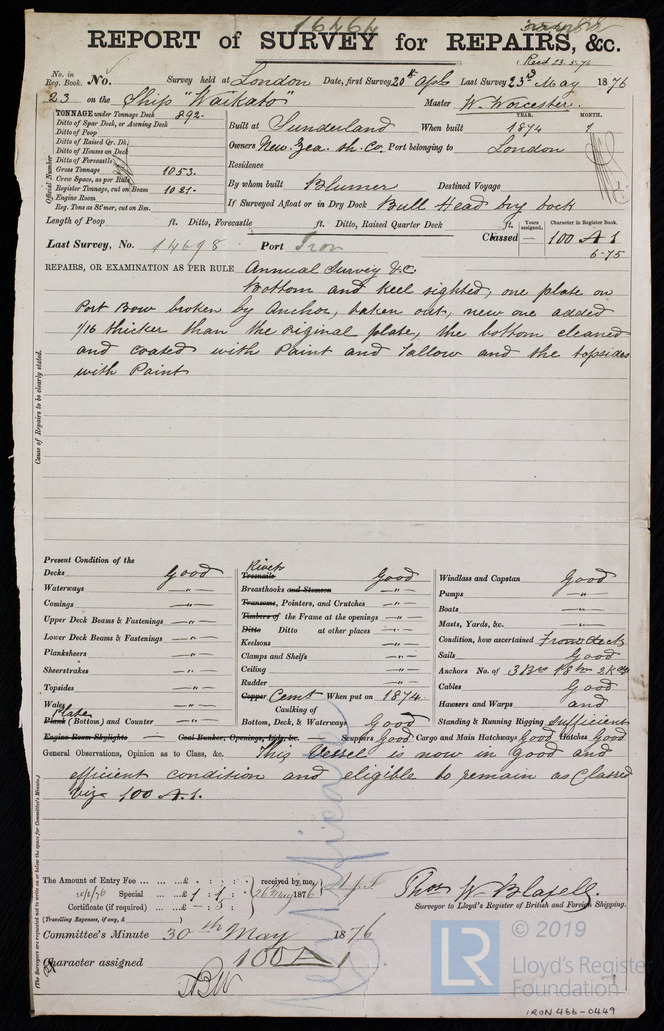 16464
REPORT of SURVEY for REPAIRS, &c.
Recd 23.5.76
No. in Reg. Book. No. Survey held at London Date, first Survey 20th Apl Last Survey 23rd May 1876
23 on the Ship "Waikato" Master W. Worcester.
TONNAGE under Tonnage Deck 892.
Ditto of Spar Deck, or Awning Deck
Ditto of Poop
Ditto of Raised Qr. Dk.
Ditto of Houses on Deck
Ditto of Forecastle
Gross Tonnage 1053.
Crew Space, as per Rule
Register Tonnage, cut on Beam 1021.
Engine Room
Reg. Tons as St'mer, cut on Bm.
Official Number
YEAR. MONTH.
Built at Sunderland When built 1874 1
Owners New. Zea. Sh. Co. Port belonging to London
Residence
By whom built Blumer Destined Voyage
If Surveyed Afloat or in Dry Dock Bull Head dry dock
Length of Poop ft. Ditto, Forecastle ft. Ditto, Raised Quarter Deck ft.
Years assigned. Character in Register Book.
Last Survey, No. 14698 Port Iron Classed — 100 A 1
6-75
REPAIRS, OR EXAMINATION AS PER RULE Annual Survey &c.
Bottom and keel sighted, one plate on
Port Bow broken by Anchor, taken out, new one added
1/16 thicker than the original plate, the bottom cleaned
and coated with Paint and Tallow and the topsides
with Paint
Cause of Repairs to be clearly stated.
Present Condition of the
Decks Good
Waterways —"—
Comings —"—
Upper Deck Beams & Fastenings —"—
Lower Deck Beams & Fastenings —"—
Planksheers —"—
Sheerstrakes —"—
Topsides —"—
Wales —"—
Plate
Plank (Bottom) and Counter —"—
Engine Room Skylights — Coal Bunker, Openings, Lids, &c. —
Rivets
Treenails Good
Breasthooks and Stemson —"—
Transoms, Pointers, and Crutches —"—
Timbers of the Frame at the openings —"—
Ditto Ditto at other places —"—
Keelsons —"—
Clamps and Shelfs —"—
Ceiling —"—
Rudder —"—
Copper Cemt When put on 1874
Caulking of
Bottom, Deck, & Waterways Good
Scuppers Good Cargo and Main Hatchways Good Hatches Good
Windlass and Capstan Good
Pumps —"—
Boats —"—
Masts, Yards, &c. —"—
Condition, how ascertained From deck
Sails Good
Anchors No. of 3 Br 1 Str 2 Kdg
Cables Good
Hawsers and Warps and
Standing & Running Rigging Sufficient
General Observations, Opinion as to Class, &c. This Vessel is now in Good and
efficient condition and eligible to remain as Classed
viz 100 A.1.
(The Surveyors are requested not to write on or below the space for Committee's Minute.)
The Amount of Entry Fee ... £ : : received by me,
Special ... £ 1 : 1 : 26 May 1876
Certificate (if required) ... £ : 5 :
(Travelling Expenses, if any, £ )
Thos W Blabell.
Surveyor to Lloyd's Register of British and Foreign Shipping.
Committee's Minute 30th May 1876
Character assigned 100 A 1
© 2019
LR
Lloyd's Register
Foundation
IRON 466-0449